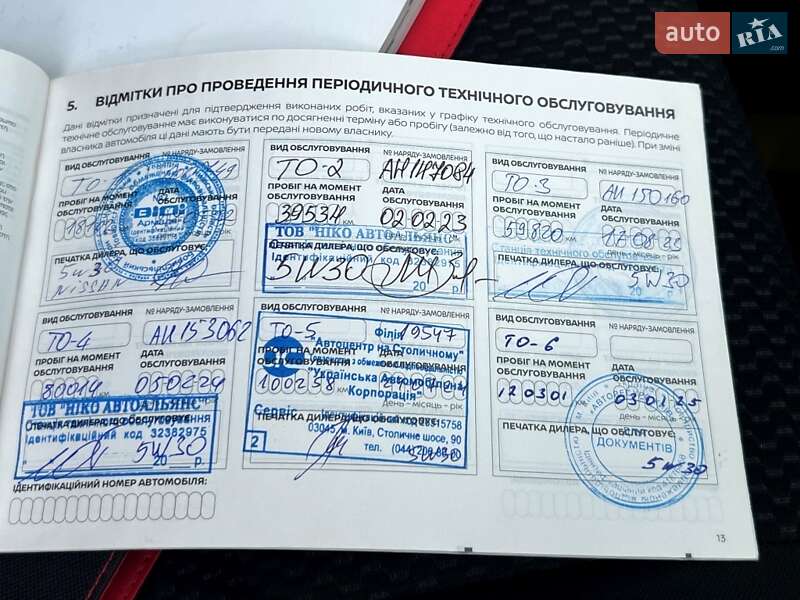 auto RIA
5. ВІДМІТКИ ПРО ПРОВЕДЕННЯ ПЕРІОДИЧНОГО ТЕХНІЧНОГО ОБСЛУГОВУВАННЯ
Дані відмітки призначені для підтвердження виконаних робіт, вказаних у графіку технічного обслуговування. Періодичне
технічне обслуговування має виконуватися по досягненні терміну або пробігу (залежно від того, що настало раніше). При зміні
власника автомобіля ці дані мають бути передані новому власнику.
ВИД ОБСЛУГОВУВАННЯ № НАРЯДУ-ЗАМОВЛЕННЯ
ТО-
ПРОБІГ НА МОМЕНТ ОБСЛУГОВУВАННЯ
ДАТА
ВІДІ
ПЕЧАТКА ДИЛЕРА, ЩО ОБСЛУГОВУЄ:
5W30
NISSAN
ВИД ОБСЛУГОВУВАННЯ № НАРЯДУ-ЗАМОВЛЕННЯ
ТО-2 АН147084
ПРОБІГ НА МОМЕНТ ОБСЛУГОВУВАННЯ
ДАТА ОБСЛУГОВУВАННЯ
39534 02.02.23
ТОВ "НІКО АВТОАЛЬЯНС"
ПЕЧАТКА ДИЛЕРА, ЩО ОБСЛУГОВУЄ:
Ідентифікаційний код 32382975
5W30
20 р.
ВИД ОБСЛУГОВУВАННЯ № НАРЯДУ-ЗАМОВЛЕННЯ
ТО-3 АН 150160
ПРОБІГ НА МОМЕНТ ОБСЛУГОВУВАННЯ
ДАТА ОБСЛУГОВУВАННЯ
59820 км
Станція технічного
ПЕЧАТКА ДИЛЕРА, ЩО ОБСЛУГОВУЄ:
5W30
20 р.
ВИД ОБСЛУГОВУВАННЯ № НАРЯДУ-ЗАМОВЛЕННЯ
ТО-4 АН153062
ПРОБІГ НА МОМЕНТ ОБСЛУГОВУВАННЯ
ДАТА ОБСЛУГОВУВАННЯ
80014 05.02.24
ТОВ "НІКО АВТОАЛЬЯНС"
ПЕЧАТКА ДИЛЕРА, ЩО ОБСЛУГОВУЄ:
Ідентифікаційний код 32382975
5W30
20 р.
ВИД ОБСЛУГОВУВАННЯ № НАРЯДУ-ЗАМОВЛЕННЯ
ТО-5 Філія 19547
"Автоцентр на Столичному"
ПРОБІГ НА МОМЕНТ ОБСЛУГОВУВАННЯ
"Українська Автомобільна
100258 км
Корпорація"
Сервіс
ПЕЧАТКА ДИЛЕРА, ЩО ОБСЛУГОВУЄ:
03045 м. Київ, Столичне шосе, 90
2 тел. (044)
5W30
ВИД ОБСЛУГОВУВАННЯ № НАРЯДУ-ЗАМОВЛЕННЯ
ТО-6
ПРОБІГ НА МОМЕНТ ОБСЛУГОВУВАННЯ
ДАТА ОБСЛУГОВУВАННЯ
120301 03.01.25
день – місяць –
ПЕЧАТКА ДИЛЕРА, ЩО ОБСЛУГОВУЄ:
ДОКУМЕНТІВ
5W30
ІДЕНТИФІКАЦІЙНИЙ НОМЕР АВТОМОБІЛЯ:
13